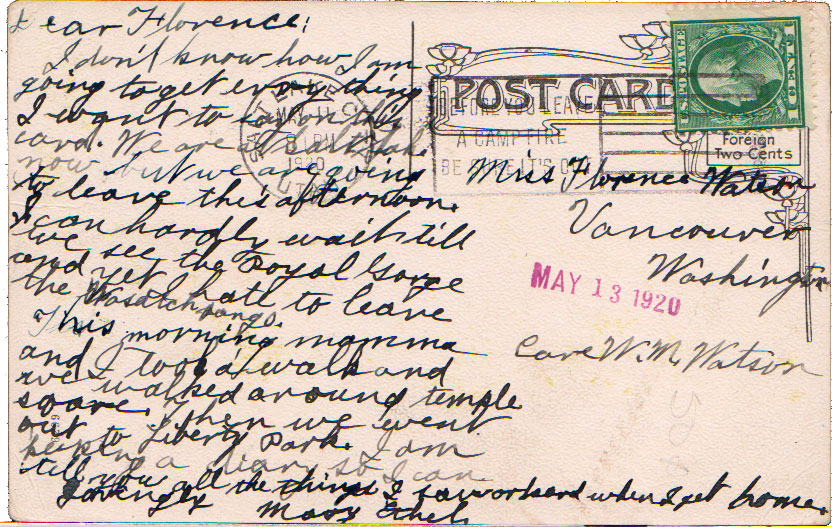 Dear Florence:
I don't know how I am
going to get every thing
I want to say on this
card. We are at Salt Lake
now but we are going
to leave this afternoon.
I can hardly wait till
we see the Royal Gorge
and yet I hate to leave
the Wasatch range.
This morning mamma
and I took a walk and
we walked around temple
sqare. Then we went
out to Liberty Park. I am
keeping a diary so I can
tell you all the things I saw when I get home.
Lovingly
Mary Ethel
SALT LAKE CITY
MAY 11
8 PM
1920
UTAH
BEFORE YOU LEAVE
A CAMP FIRE
BE SURE IT'S OUT
POST CARD
U.S. POSTAGE
Foreign
Two Cents
Miss Florence Watson
Vancouver
Washington
MAY 13 1920
Care W. M. Watson